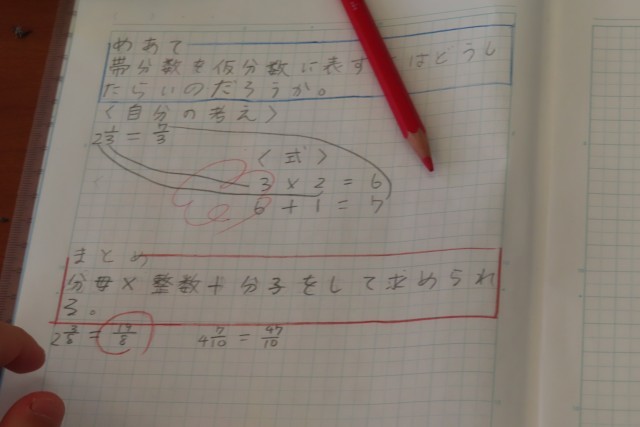 めあて
帯分数を仮分数に表すにはどうし
たらいいのだろうか。
〈自分の考え〉
2 1/3 = 7/3
〈式〉
3 × 2 = 6
6 + 1 = 7
まとめ
分母×整数+分子をして求められ
る。
2 3/8 = 19/8 4 7/10 = 47/10